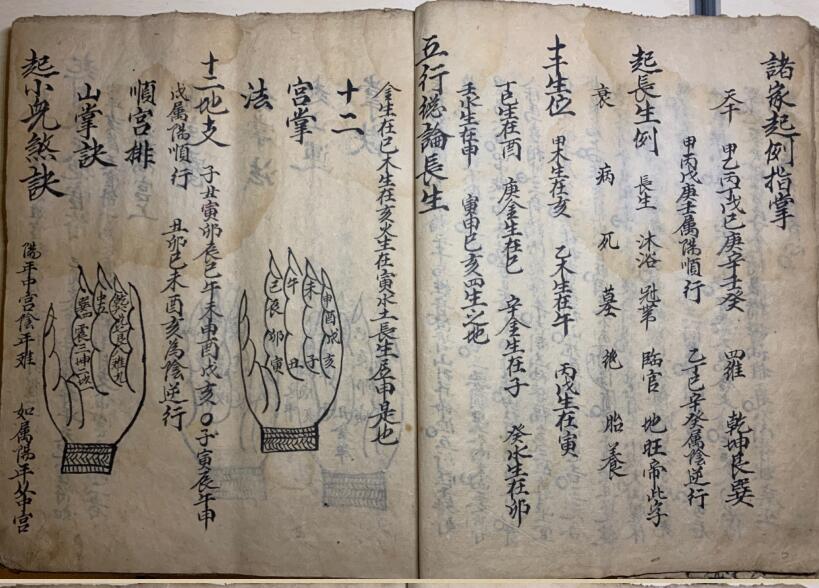 諸家起例指掌
天干 甲乙丙丁戊己庚辛壬癸 四維 乾坤艮巽
甲丙戊庚壬属陽順行 乙丁己辛癸属陰逆行
起長生例 長生 沐浴 冠帯 臨官 地旺帝此字
衰 病 死 墓 绝 胎 養
十干生位 甲木生在亥 乙木生在午 丙戊生在寅
丁己生在酉 庚金生在巳 辛金生在子 癸水生在卯
壬水生在申 寅申巳亥四生之地
五行総論長生
金生在巳木生在亥火生在寅水土長生居申是也
十二
宮掌
法
申酉戌亥
未 子
午 丑
巳辰卯寅
十二地支 子丑寅卯辰巳午未申酉戌亥〇子寅辰午申
戌属陽順行 丑卯巳未酉亥為陰逆行
順宮排
山掌訣
中五
巽四震三坤二坎
起小兒煞訣
陽年中宮陰年離 如属陽年英中宮